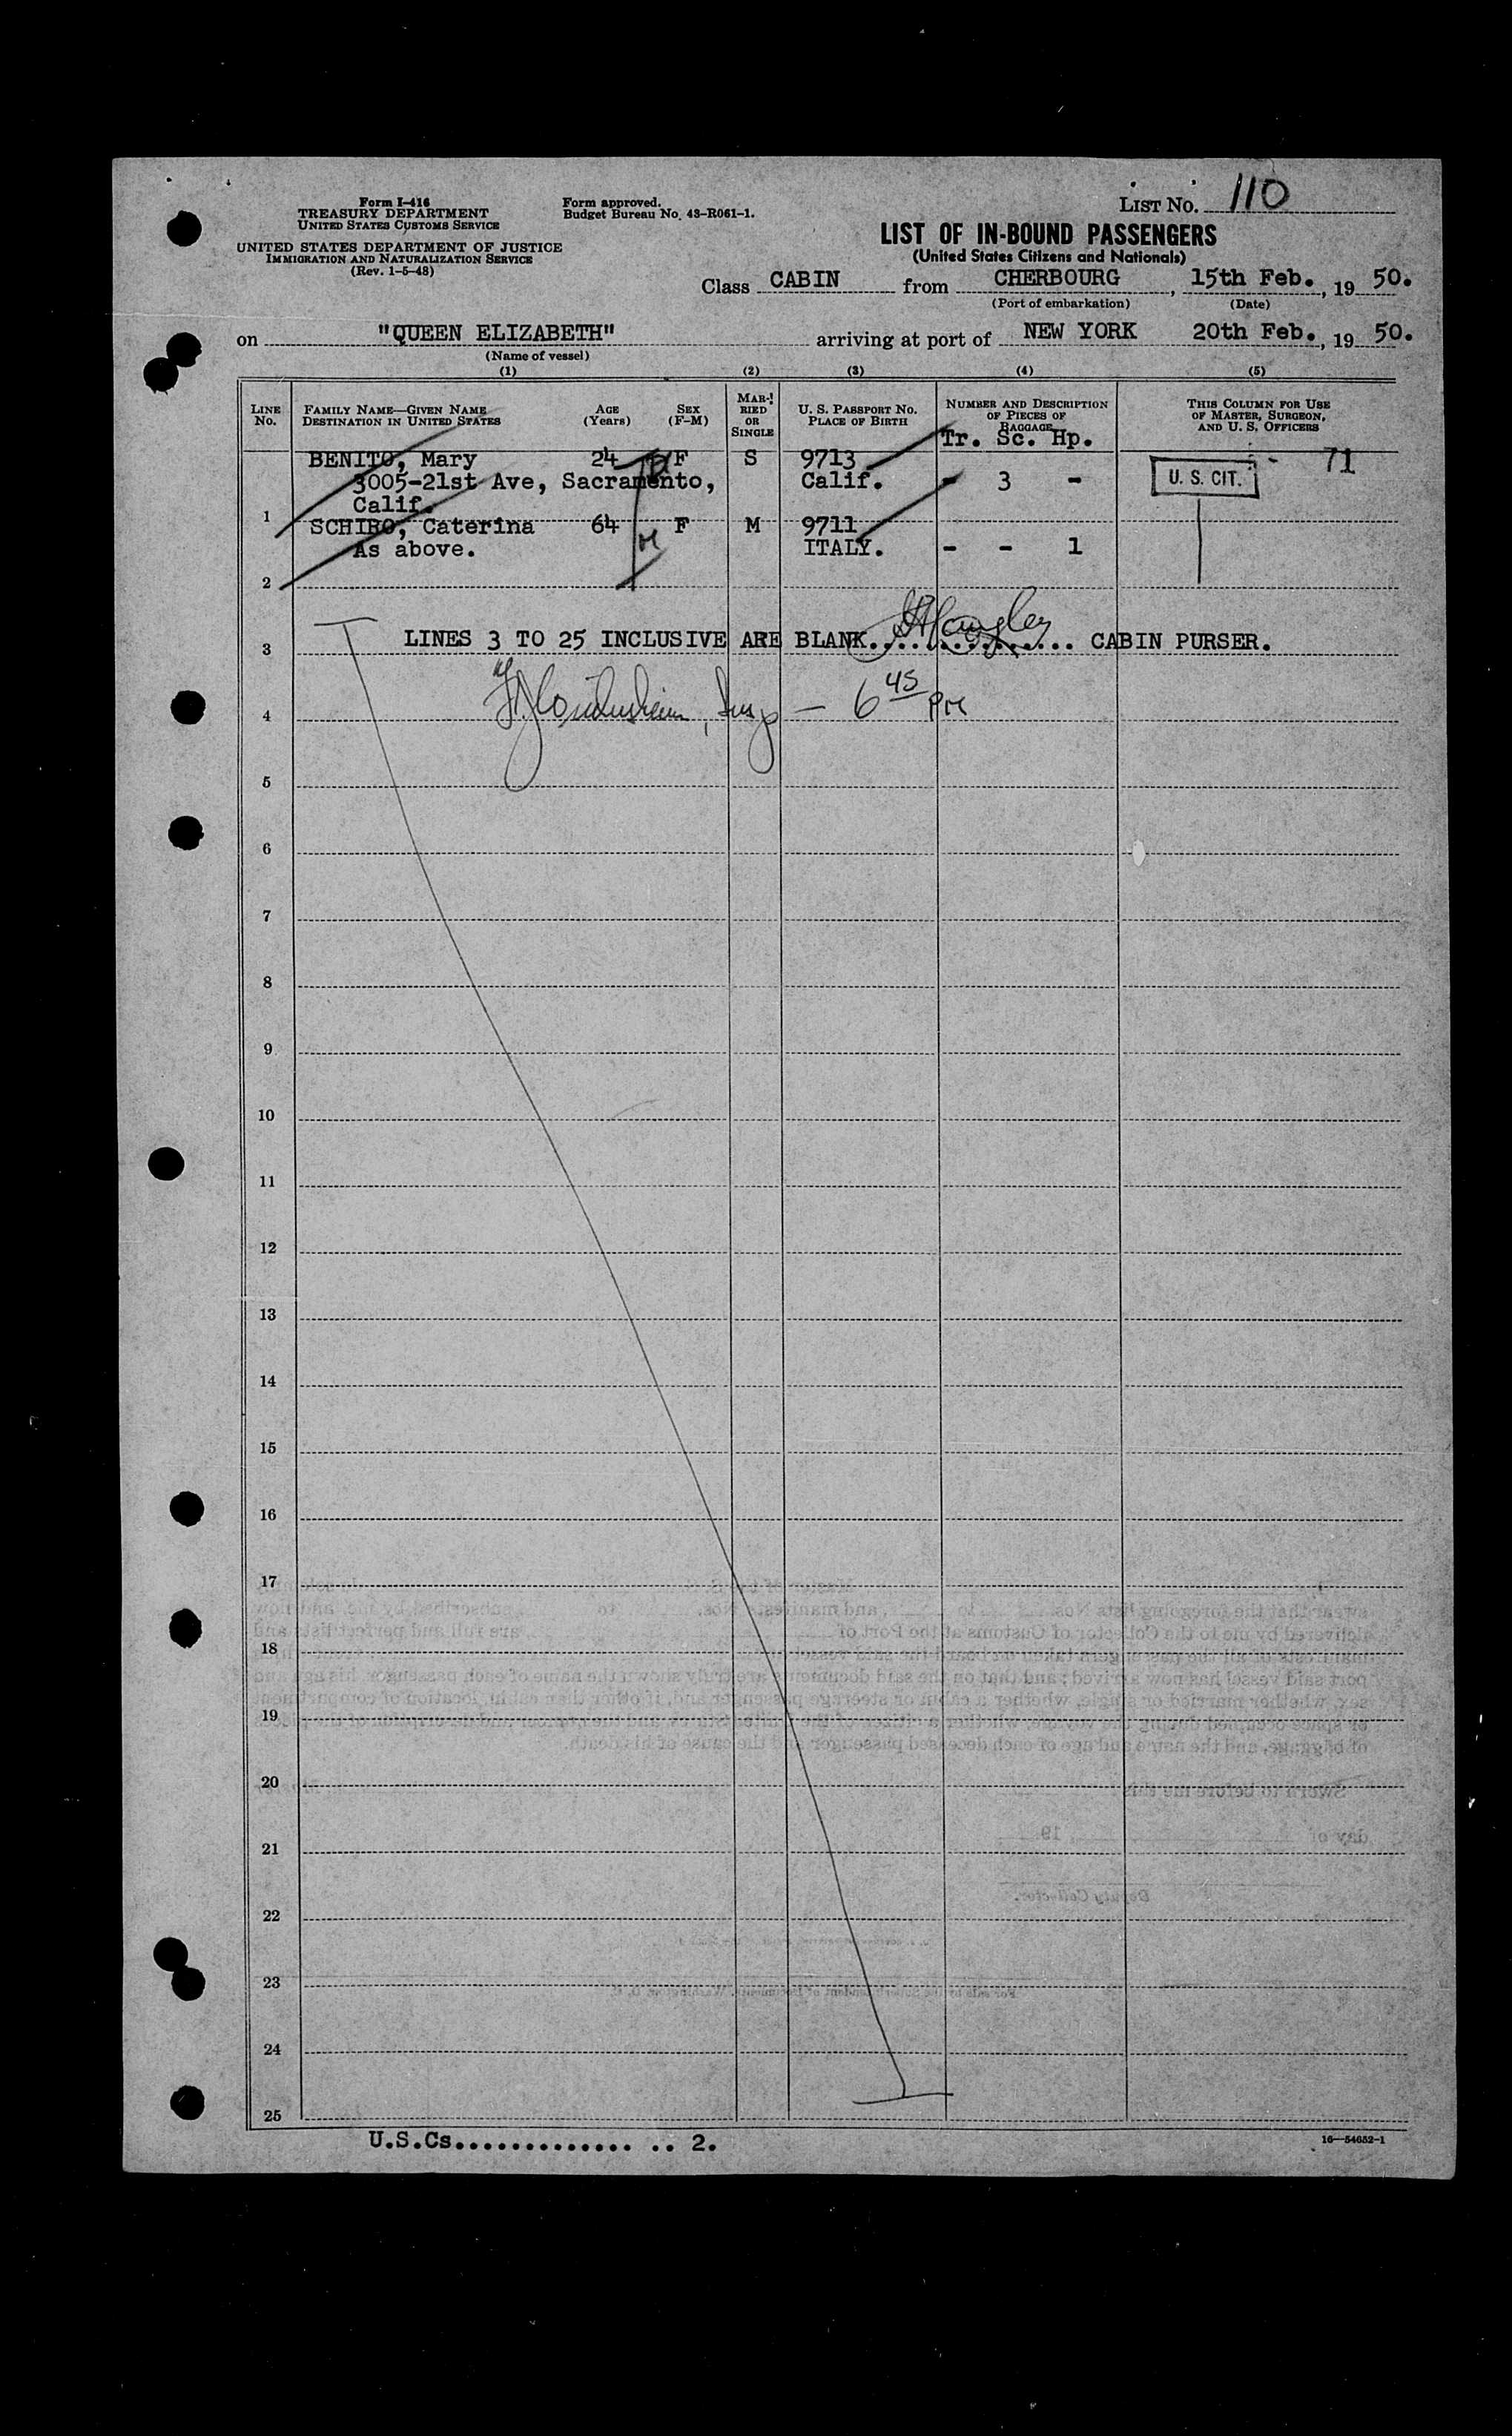 Form I-416
TREASURY DEPARTMENT
UNITED STATES CUSTOMS SERVICE
UNITED STATES DEPARTMENT OF JUSTICE
IMMIGRATION AND NATURALIZATION SERVICE
(Rev. 1-5-48)
Form approved.
Budget Bureau No. 43-R061-1.
LIST NO. 110
LIST OF IN-BOUND PASSENGERS
(United States Citizens and Nationals)
Class CABIN from CHERBOURG, 15th Feb., 19 50.
(Port of embarkation) (Date)
on "QUEEN ELIZABETH" arriving at port of NEW YORK 20th Feb., 19 50.
(Name of vessel)
(1) (2) (3) (4) (5)
LINE NO.
FAMILY NAME—GIVEN NAME
DESTINATION IN UNITED STATES
AGE (Years)
SEX (F-M)
MARRIED OR SINGLE
U. S. PASSPORT NO.
PLACE OF BIRTH
NUMBER AND DESCRIPTION OF PIECES OF BAGGAGE
Tr. Sc. Hp.
THIS COLUMN FOR USE OF MASTER, SURGEON, AND U. S. OFFICERS
BENITO, Mary 24 F S 9713 71
3005-21st Ave, Sacramento, Calif. - 3 - U. S. CIT.
Calif.
1
SCHIRO, Caterina 64 F M 9711
As above. ITALY. - - 1
2
3 LINES 3 TO 25 INCLUSIVE ARE BLANK. CABIN PURSER.
4 6 45 PM
5
6
7
8
9
10
11
12
13
14
15
16
17
18
19
20
21
22
23
24
25
U.S.Cs.............. .. 2.
16—54652-1